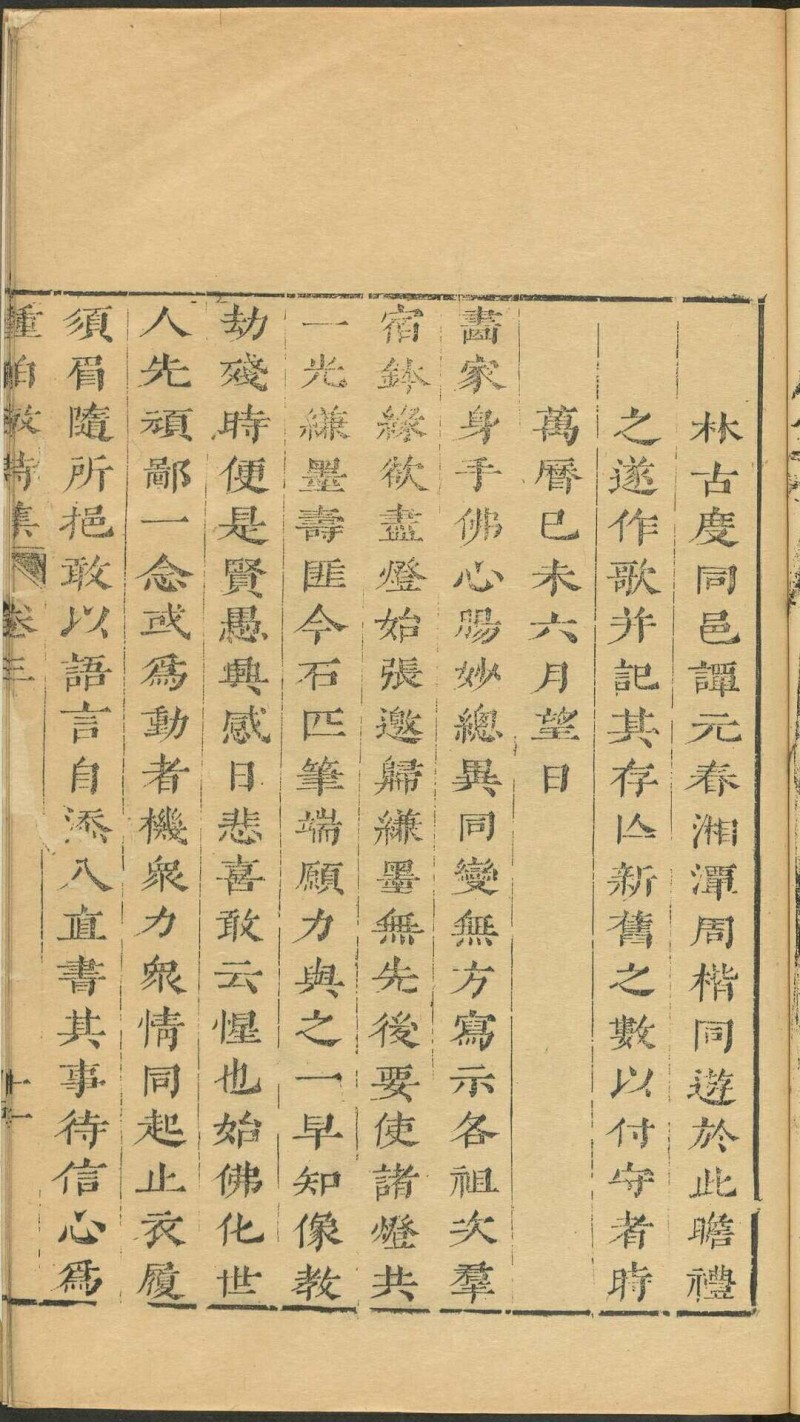 林古度同邑譚元春湘潭周楷同遊於此瞻禮
之遂作歌并記其存亾新舊之數以付守者時
萬曆己未六月望日
畵家身手佛心腸妙總異同變無方寫示各祖次羣
宿鉢緣欲盡燈始張邀歸縑墨無先後要使諸燈共
一光縑墨壽匪今石匹筆端願力與之一早知像教
劫殘時便是賢愚興感日悲喜敢云惺也始佛化世
人先頑鄙一念或爲動者機衆力衆情同起止衣履
須眉隨所挹敢以語言自添入直書其事待信心爲
鍾伯敬詩集 卷三 十一